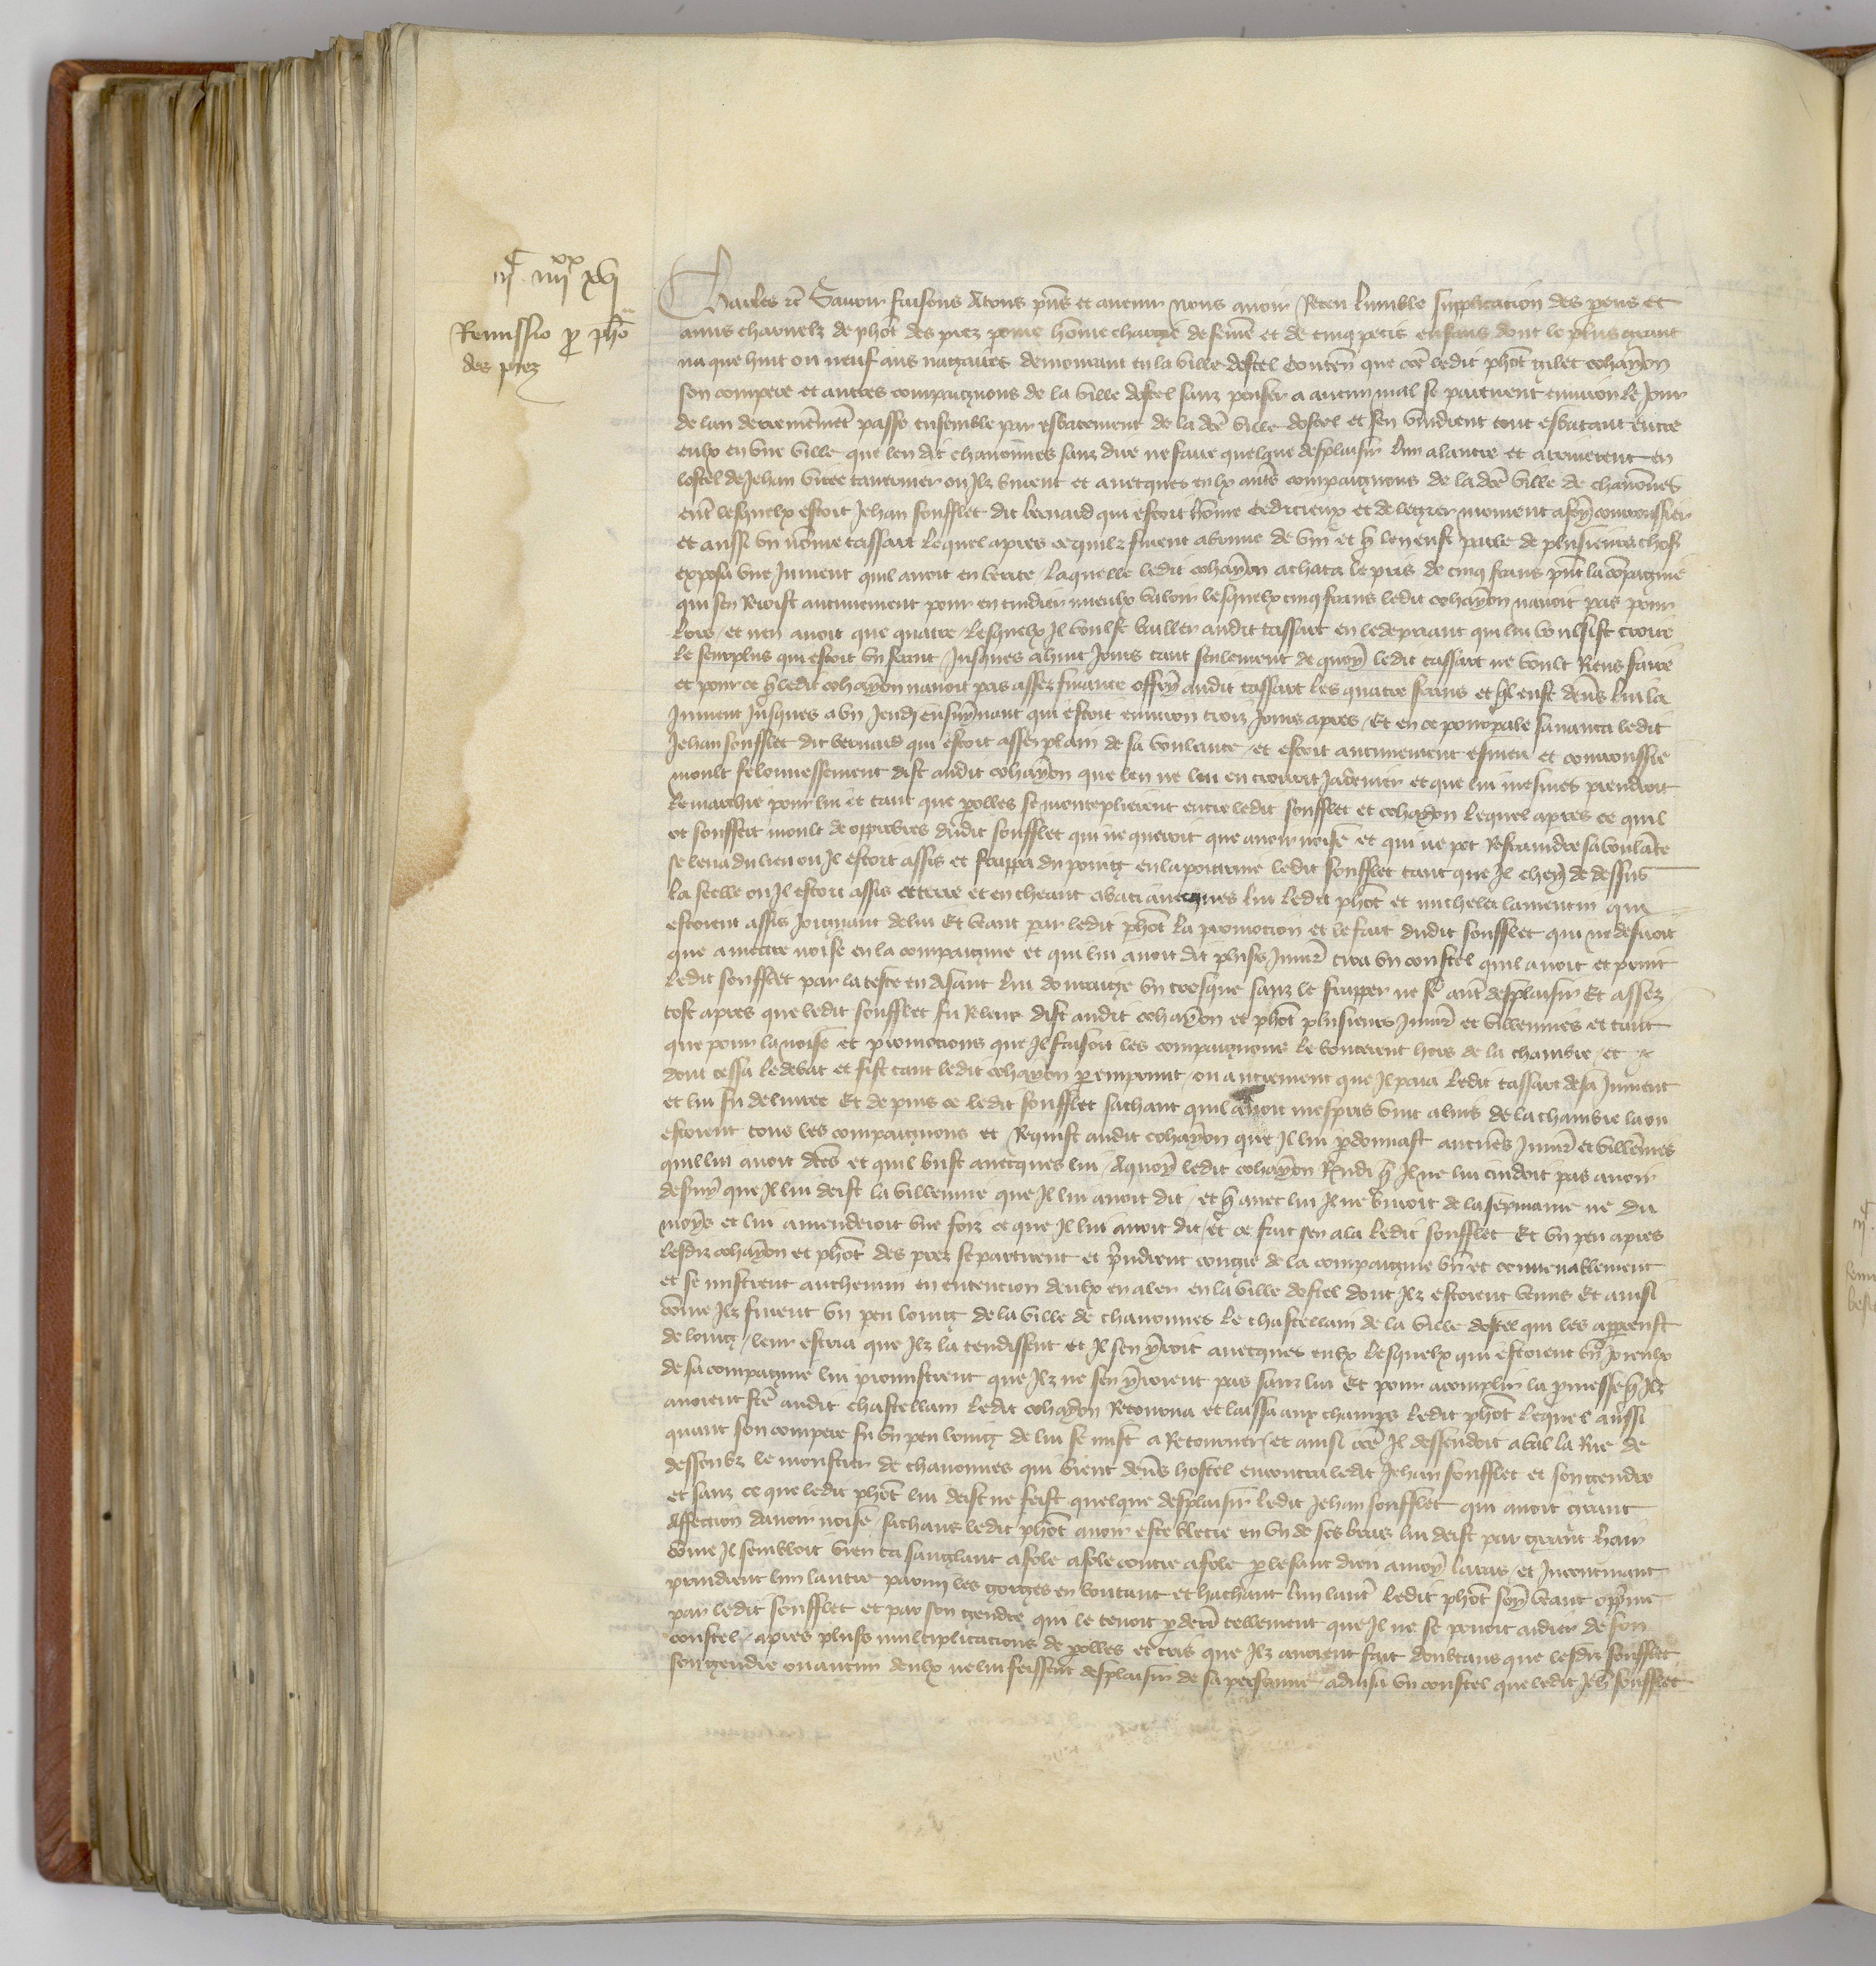 iijc iiijxx xvj
Remissio pro phot
des prez
Charles etc Savoir faisons A tous pns et avenir nous avoir Receu lumble supplicacion des gens et
amis charnelz de phot des prez povre homme chargie de feme et de cinq petis enfans dont le plus grant
na que huit ou neuf ans nagaires demourant en la ville dostel Conten que cõe ledit phot gilet cohayon
son compere et autres compaignons de la ville dostel sanz penser a aucun mal se partirent environ le Jour
de lan derrenement passe ensemble par esbatement de la dce ville dostel et sen vindrent tout esbatant entre
eulx en une ville que len dit chavonnes sanz dire ne faire quelque desplaisir lun a lautre et arriverent en
lostel de Jehan tavernier ou Ilz burent et avecques eulx autres compaignons de ladce ville de chavonnes
ent lesquelx estoit Jehan soufflet dit bernard qui estoit home et de legier moment a soy courroussier
et aussi un nomme tassart lequel apres ce quilz furent abuvre de vin et q len eust parle de plusieurs choses
exposa une Jument quil avoit en vente laquelle ledit cohayon achata le pris de cinq frans pnt la compaignie
qui sen Rioist aucunement pour en cuidier mieulx valoir lesquelx cinq frans ledit cohayon navoit pas pour
lore / et nen avoit que quatre / lesquelx Il voulst baillier audit tassart en le depriant qui lui voulsist croire
le seurplus qui estoit un franc / Jusques a huit Jours tant seulement de quoy ledit tassart ne voult Riens faire
et pour ce q ledit cohayon navoit pas assez finance offry audit tassart les quatre frans et quil eust devers lui la
Jument Jusques a un Jeudi ensuyvant qui estoit environ trois Jours apres / Et en ce propos savanca ledit
Jehan soufflet dit bernard qui estoit assez plain de sa voulente / et estoit aucunement esmeu et courroussie
moult felonnessement dist audit cohayon que len ne lui en croiroit Ja denier et que lui mesmes prendroit
le marchie pour lui et tant que polles se monteplierent entre ledit soufflet et cohayon lequel apres ce quil
ot souffert moult de opprobres dudit soufflet qui ne queroit que avoir noise et qui ne pot Refraindre sa voulente
se leva du lieu ou Il estoit assis et frappa du poing en la poitrine ledit soufflet tant que Il chey de dessus
la selle ou Il estoit assis a terre et en cheant abati avecques lui ledit phot et michelet lamentin qui
estoient assis Joignant de lui Et veant par ledit phot la promocion et le fait dudit soufflet qui ne desiroit
que a mettre noise en la compaignie et qui lui avoit dit plusrs Injur tira un coustel quil avoit et print
ledit soufflet par la teste en disant lui sanz le frapper ne fe aut desplaisir Et assez
tost apres que ledit soufflet fu Releve dist audit cohayon et phot plusieurs Injur et villennies et tant
que pour la noise et promocions que Il faisoit les compaignons le bouterent hors de la chambre / et
dont cessa le debat et fist tant ledit cohayon p emprunt / ou autrement que Il paia ledit tassart de sa Jument
et lui fu delivree Et depuis ce ledit soufflet sachant quil avoit mespris vint a luis de la chambre la ou
estoient tous les compaignons et Requist audit cohayon que Il lui pardonnast aucunes Injur et villenies
quil lui avoit dces et quil bust avecques lui / A quoy ledit cohayon Respondi q Il ne lui cuidoit pas avoir
desservy que Il lui deist la villennie que Il lui avoit dit / et q avec lui Il ne buvroit de la sepmaine ne du
moys et lui amenderoit une foiz ce que Il lui avoit dit / et ce fait sen ala ledit soufflet Et un peu apres
lesdiz cohayon et phot des prez se partirent et prindrent congie de la compaignie bn et convenablement
et se mistrent au chemin en entencion deulx en aler en la ville dostel dont Ilz estoient venus Et ainsi
come Ilz furent un peu loing de la ville de chavonnes le chastellain de la ville dostel qui les apperceust
de loing / leur escria que Ilz latendissent et Il sen yroit avecques eulx lesquelx qui estoient bn Joieulx
de sa compaignie lui promistrent que Ilz ne sen yroient pas sanz lui Et pour acomplir la pmesse q Ilz
avoient fte audit chastellain ledit cohayon Retourna et laissa aux champs ledit phot lequel aussi
quant son compere fu un peu loing de lui se mist a Retourner / et ainsi cõe Il dessendoit aval la Rue de
dessoubz le moustier de chavonnes qui vient devers hostel encontra ledit Jehan soufflet et son gendre
et sanz ce que ledit phot lui deist ne feist quelque desplaisir ledit Jehan soufflet qui avoit grant
Affection davoir noise / sachant ledit phot avoir este blecie en un de ses bras lui deist par grant hair
come Il sembloit bien sanglant afole afole contre afole p le sant dieu a moy lairas / et Incontinant
prindrent lun lautre parmi les gorges en boutant et hachant lun lautr ledit phot soy veant oppme
par ledit soufflet et par son gendre qui le tenoit p derr tellement que Il ne se povoit aidier de son
coustel / apres plusrs multiplicacions de polles et cris que Ilz avoient fait doubtans que lesdiz soufflet
son gendre ou aucun deulx ne lui feissent desplaisir de sa personne / advisa un coustel que ledit Jeh soufflet